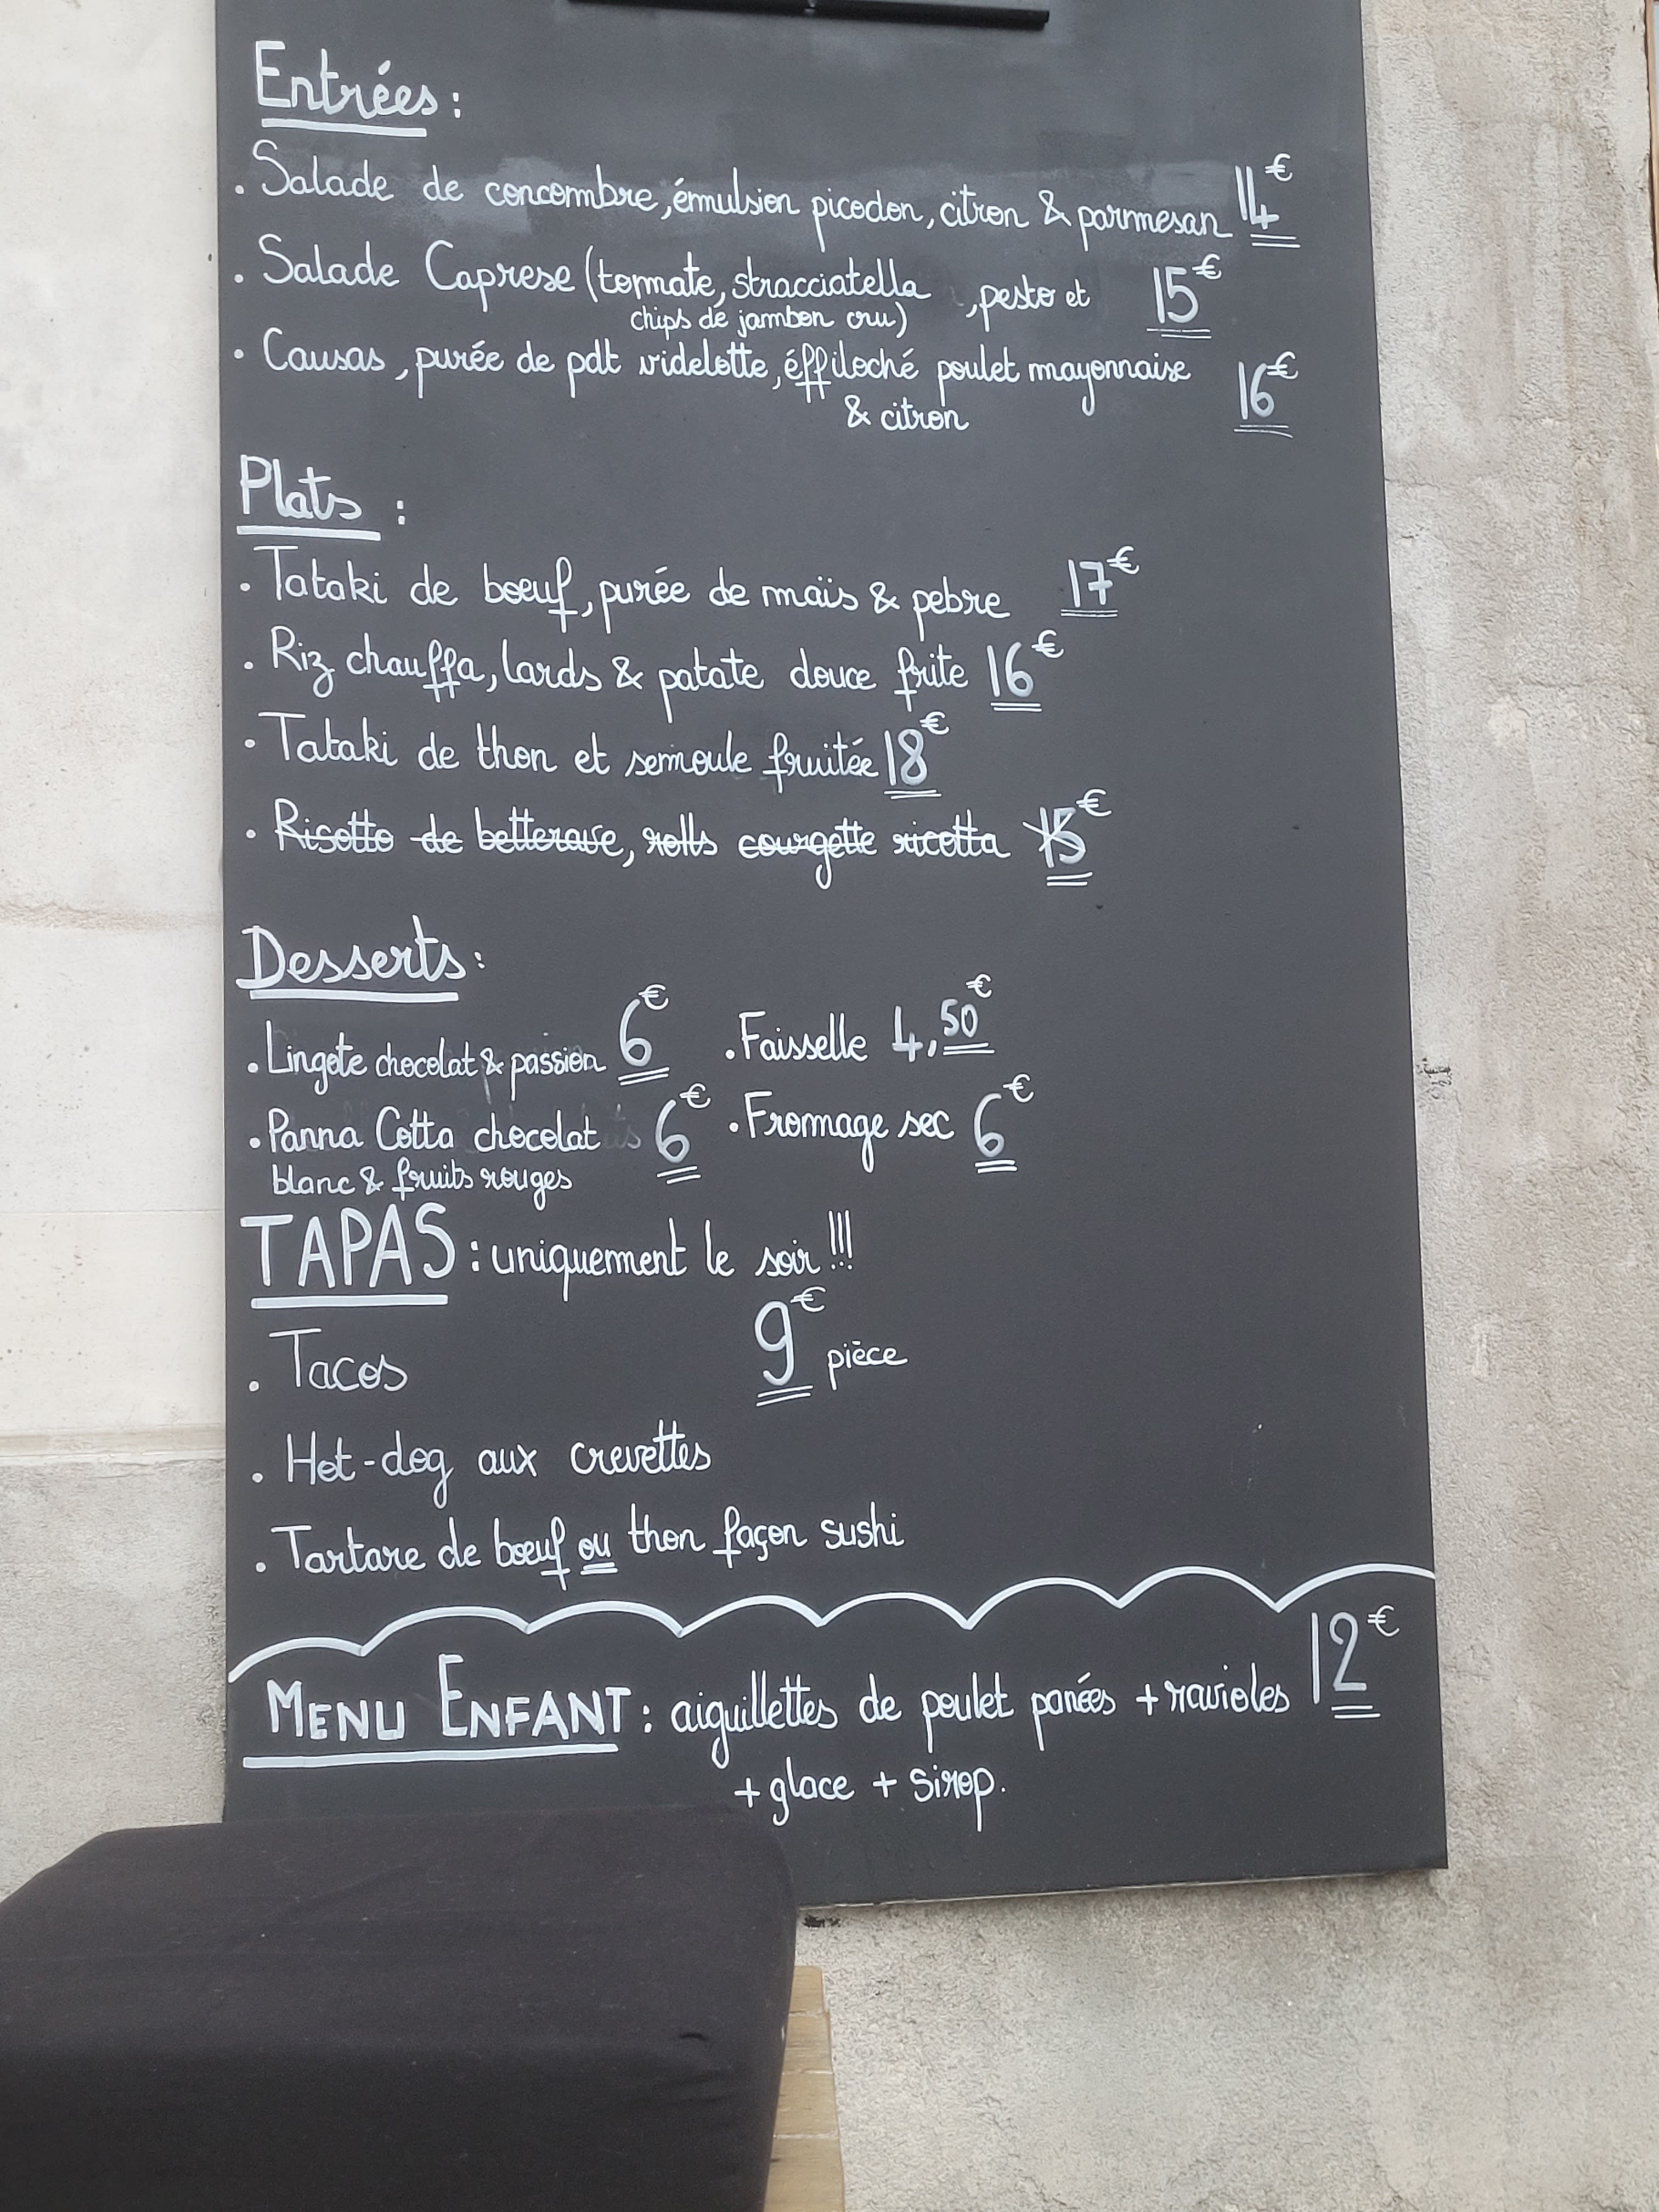 Entrées :
. Salade de concombre, émulsion picodon, citron & parmesan 14€
. Salade Caprese (tomate, stracciatella , pesto et 15€
chips de jambon cru)
. Causas, purée de pdt videlotte, éffiloché poulet mayonnaise 16€
& citron
Plats :
. Tataki de bœuf, purée de maïs & pebre 17€
. Riz chauffa, lards & patate douce frite 16€
. Tataki de thon et semoule fruitée 18€
. Risotto de betterave, rolls courgette ricotta 15€
Desserts :
. Lingote chocolat & passion 6€ . Faisselle 4,50€
. Panna Cotta chocolat 6€ . Fromage sec 6€
blanc & fruits rouges
TAPAS : uniquement le soir !!!
. Tacos 9€ pièce
. Hot-dog aux crevettes
. Tartare de bœuf ou thon façon sushi
MENU ENFANT : aiguillettes de poulet panées + ravioles 12€
+ glace + sirop.